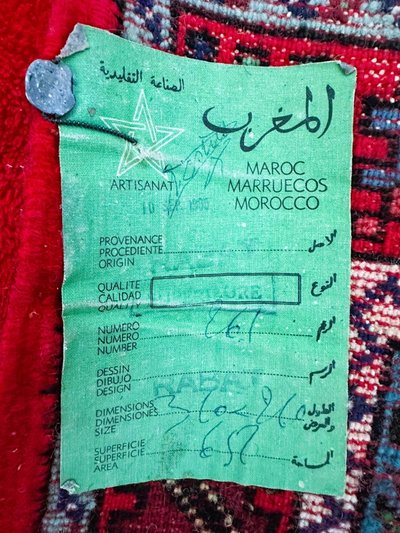 الصناعة التقليدية
المغرب
ARTISANAT
MAROC
MARRUECOS
MOROCCO
PROVENANCE
PROCEDIENTE
ORIGIN
الاصل
QUALITE
CALIDAD
QUALITY
النوع
NUMÉRO
NUMERO
NUMBER
الرقم
DESSIN
DIBUJO
DESIGN
الرسم
RABAT
DIMENSIONS
DIMENSIONES
SIZE
الطول
والعرض
SUPERFICIE
SUPERFICIE
AREA
المساحة